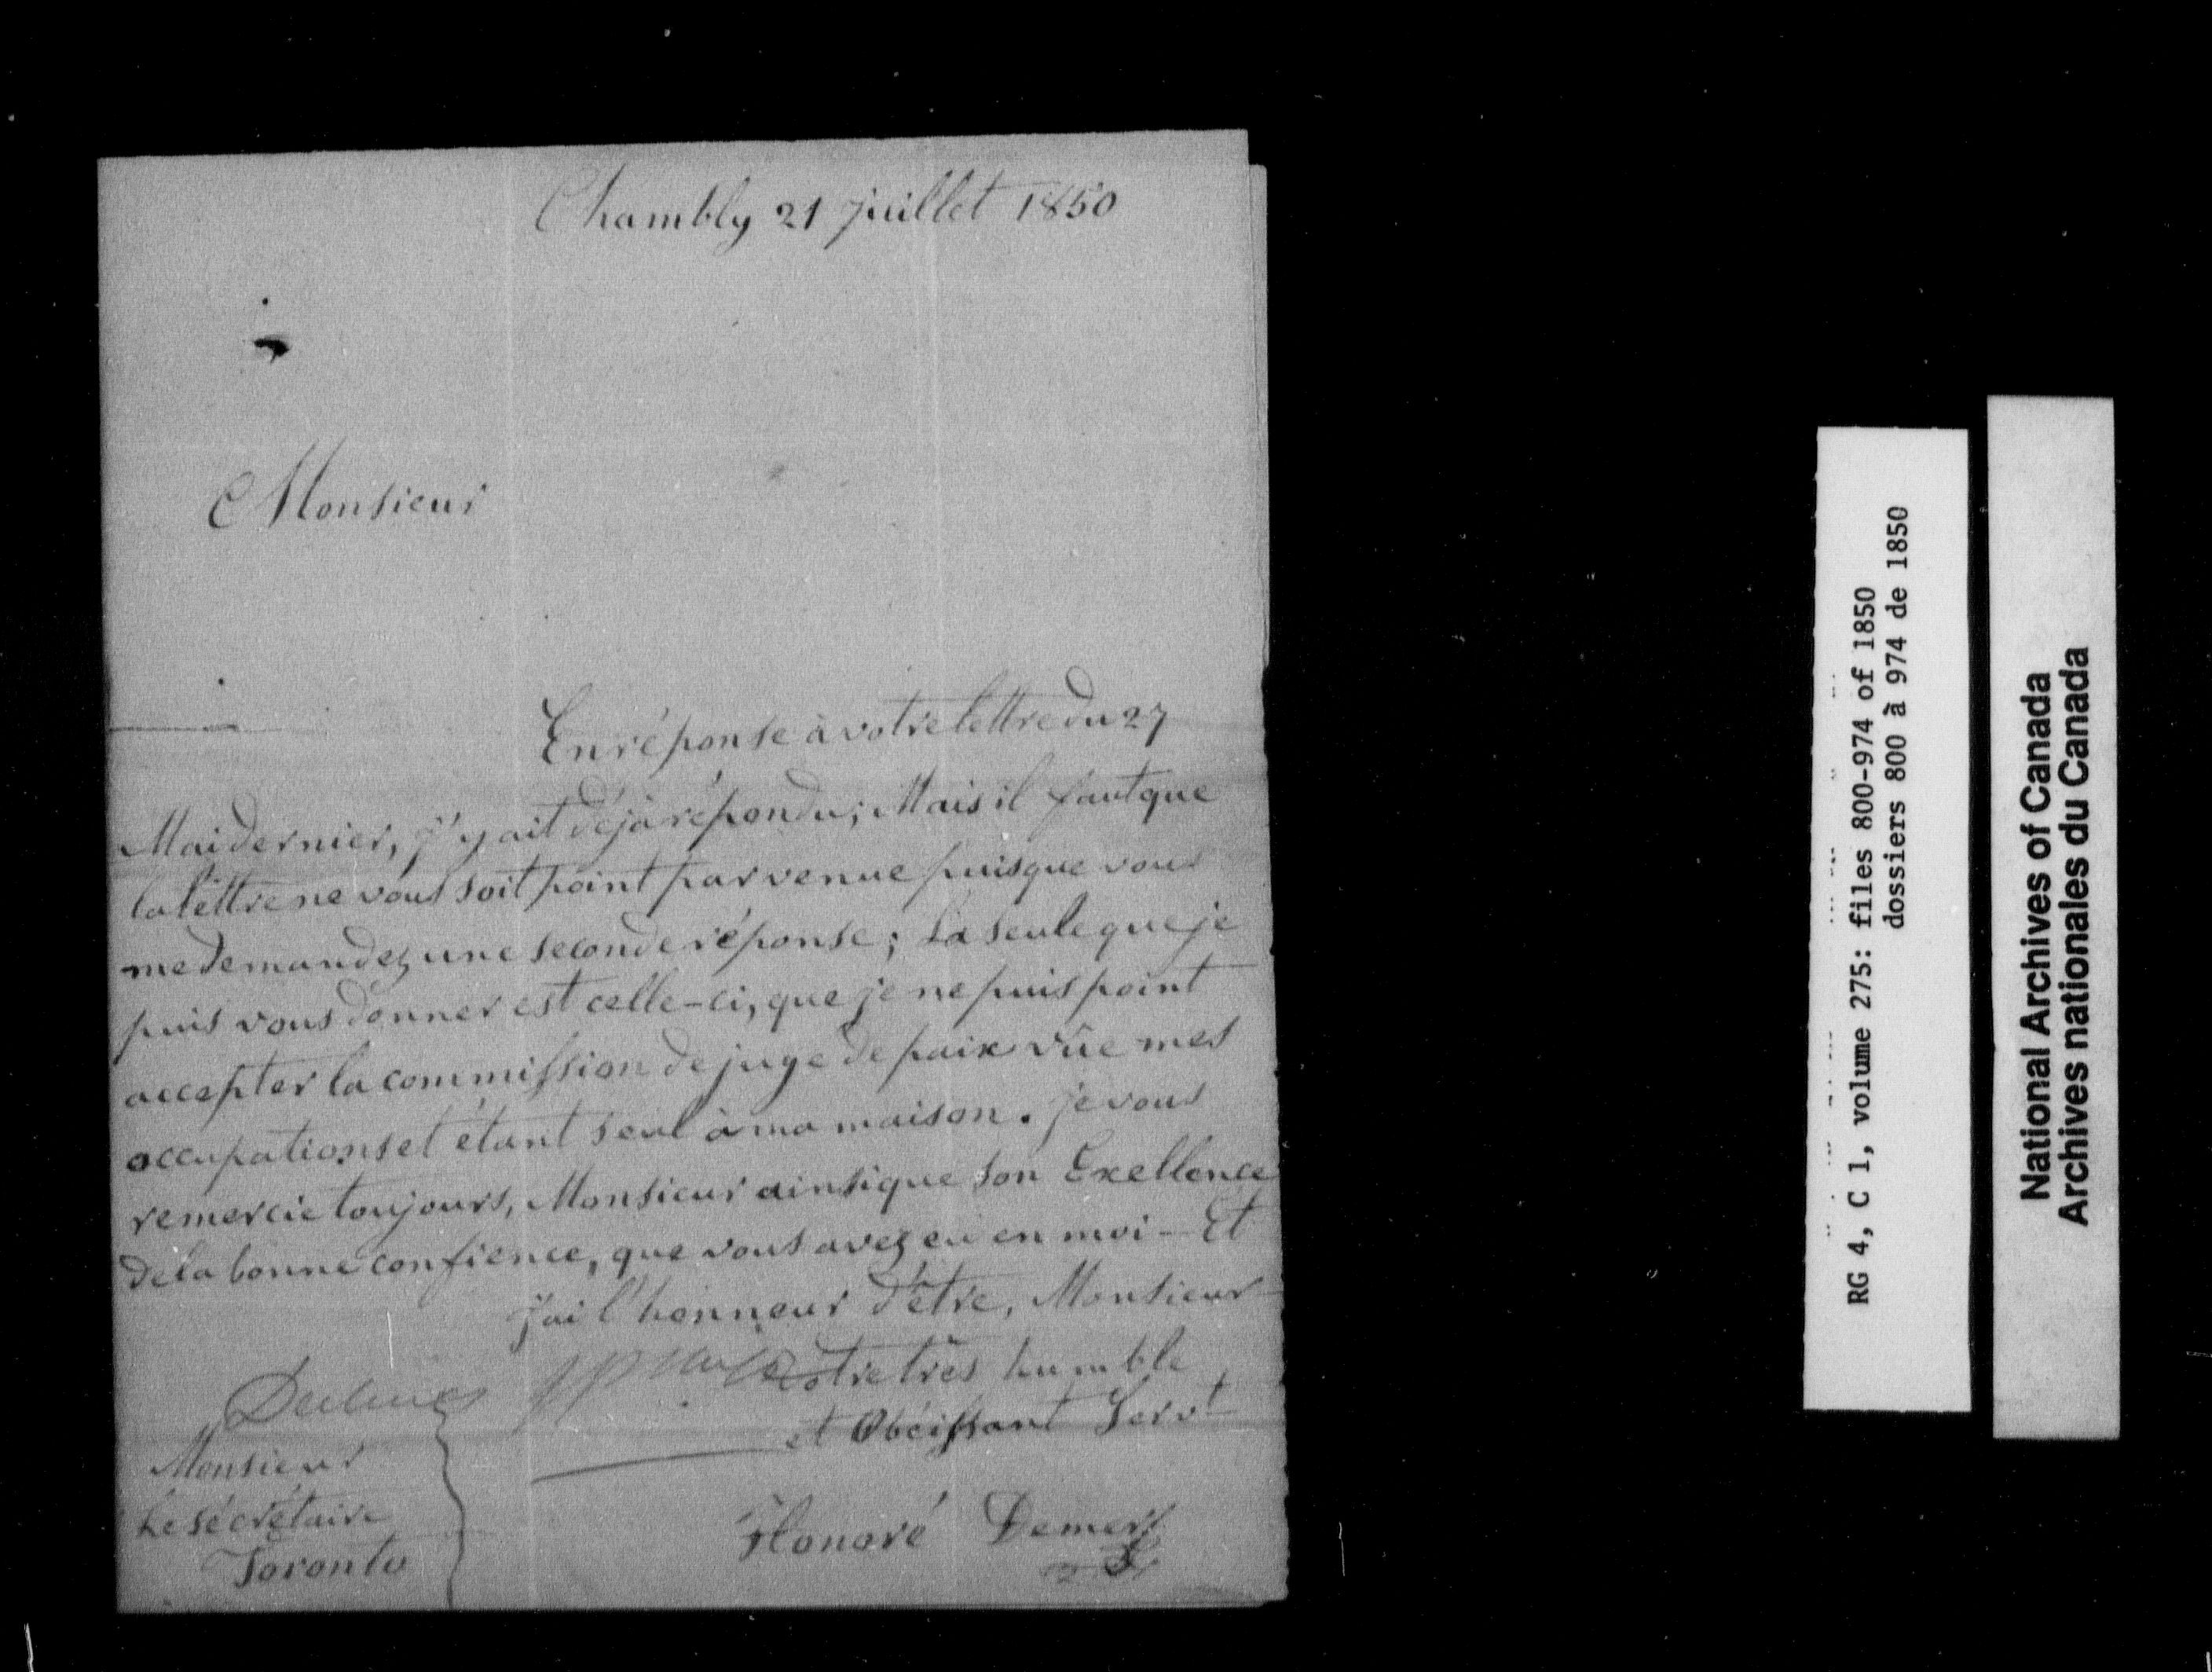 Chambly 21 juillet 1850
Monsieur
En réponse à votre lettre du 27
Mai dernier, j'y ait déjà répondu; Mais il faut que
la lettre ne vous soit point parvenue puisque vous
me demandez une seconde réponse; La seule que je
puis vous donner est celle-ci, que je ne puis point
accepter la commission de juge de paix vûe mes
occupations et étant seul à ma maison. je vous
remercie toujours, Monsieur ainsi que son Exellence
de la bonne confience, que vous avez eu en moi — Et
j'ai l'honneur d'être, Monsieur
Votre très humble
et Obéissant Servt
Declines
Monsieur
Le sécrétaire
Toronto
Honoré Demers
RG 4, C 1, volume 275: files 800-974 of 1850
dossiers 800 à 974 de 1850
National Archives of Canada
Archives nationales du Canada